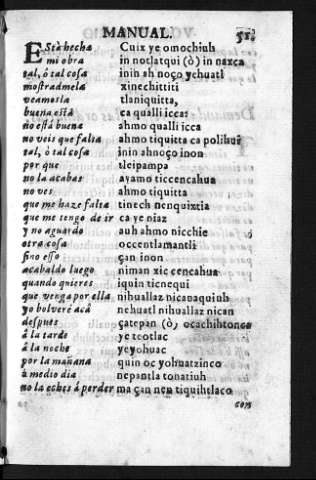 MANUAL. 51.
EStà hecha Cuix ye omochiuh
mi obra in notlatqui (ò) in naxca
tal, ó tal cosa inin ah noço yehuatl
mostradmela xinechittiti
veamosla tlaniquitta,
buena està ca qualli icca:
no està buena ahmo qualli icca
no veis que falta ahmo tiquitta ca polihui
tal, ò tal cosa inin ahnoço inon
por que tleipampa
no la acabas ayamo ticcencahua
no ves ahmo tiquitta
que me haze falta tinech nenquixtia
que me tengo de ir ca ye niaz
y no aguardo auh ahmo nicchie
otra cosa occentlamantli
sino esso çan inon
acabaldo luego niman xic cencahua
quando quieres iquin ticnequi
que venga por ella nihuallaz nicanaquiuh
yo bolverè acà nehuatl nihuallaz nican
despues çatepan (ò) ocachihtonca
á la tarde ye teotlac
á la noche yeyohuac
por la mañana quin oc yohuatzinco
à medio dia nepantla tonatiuh
no la eches á perder ma çan nen tiquihtlaco
com